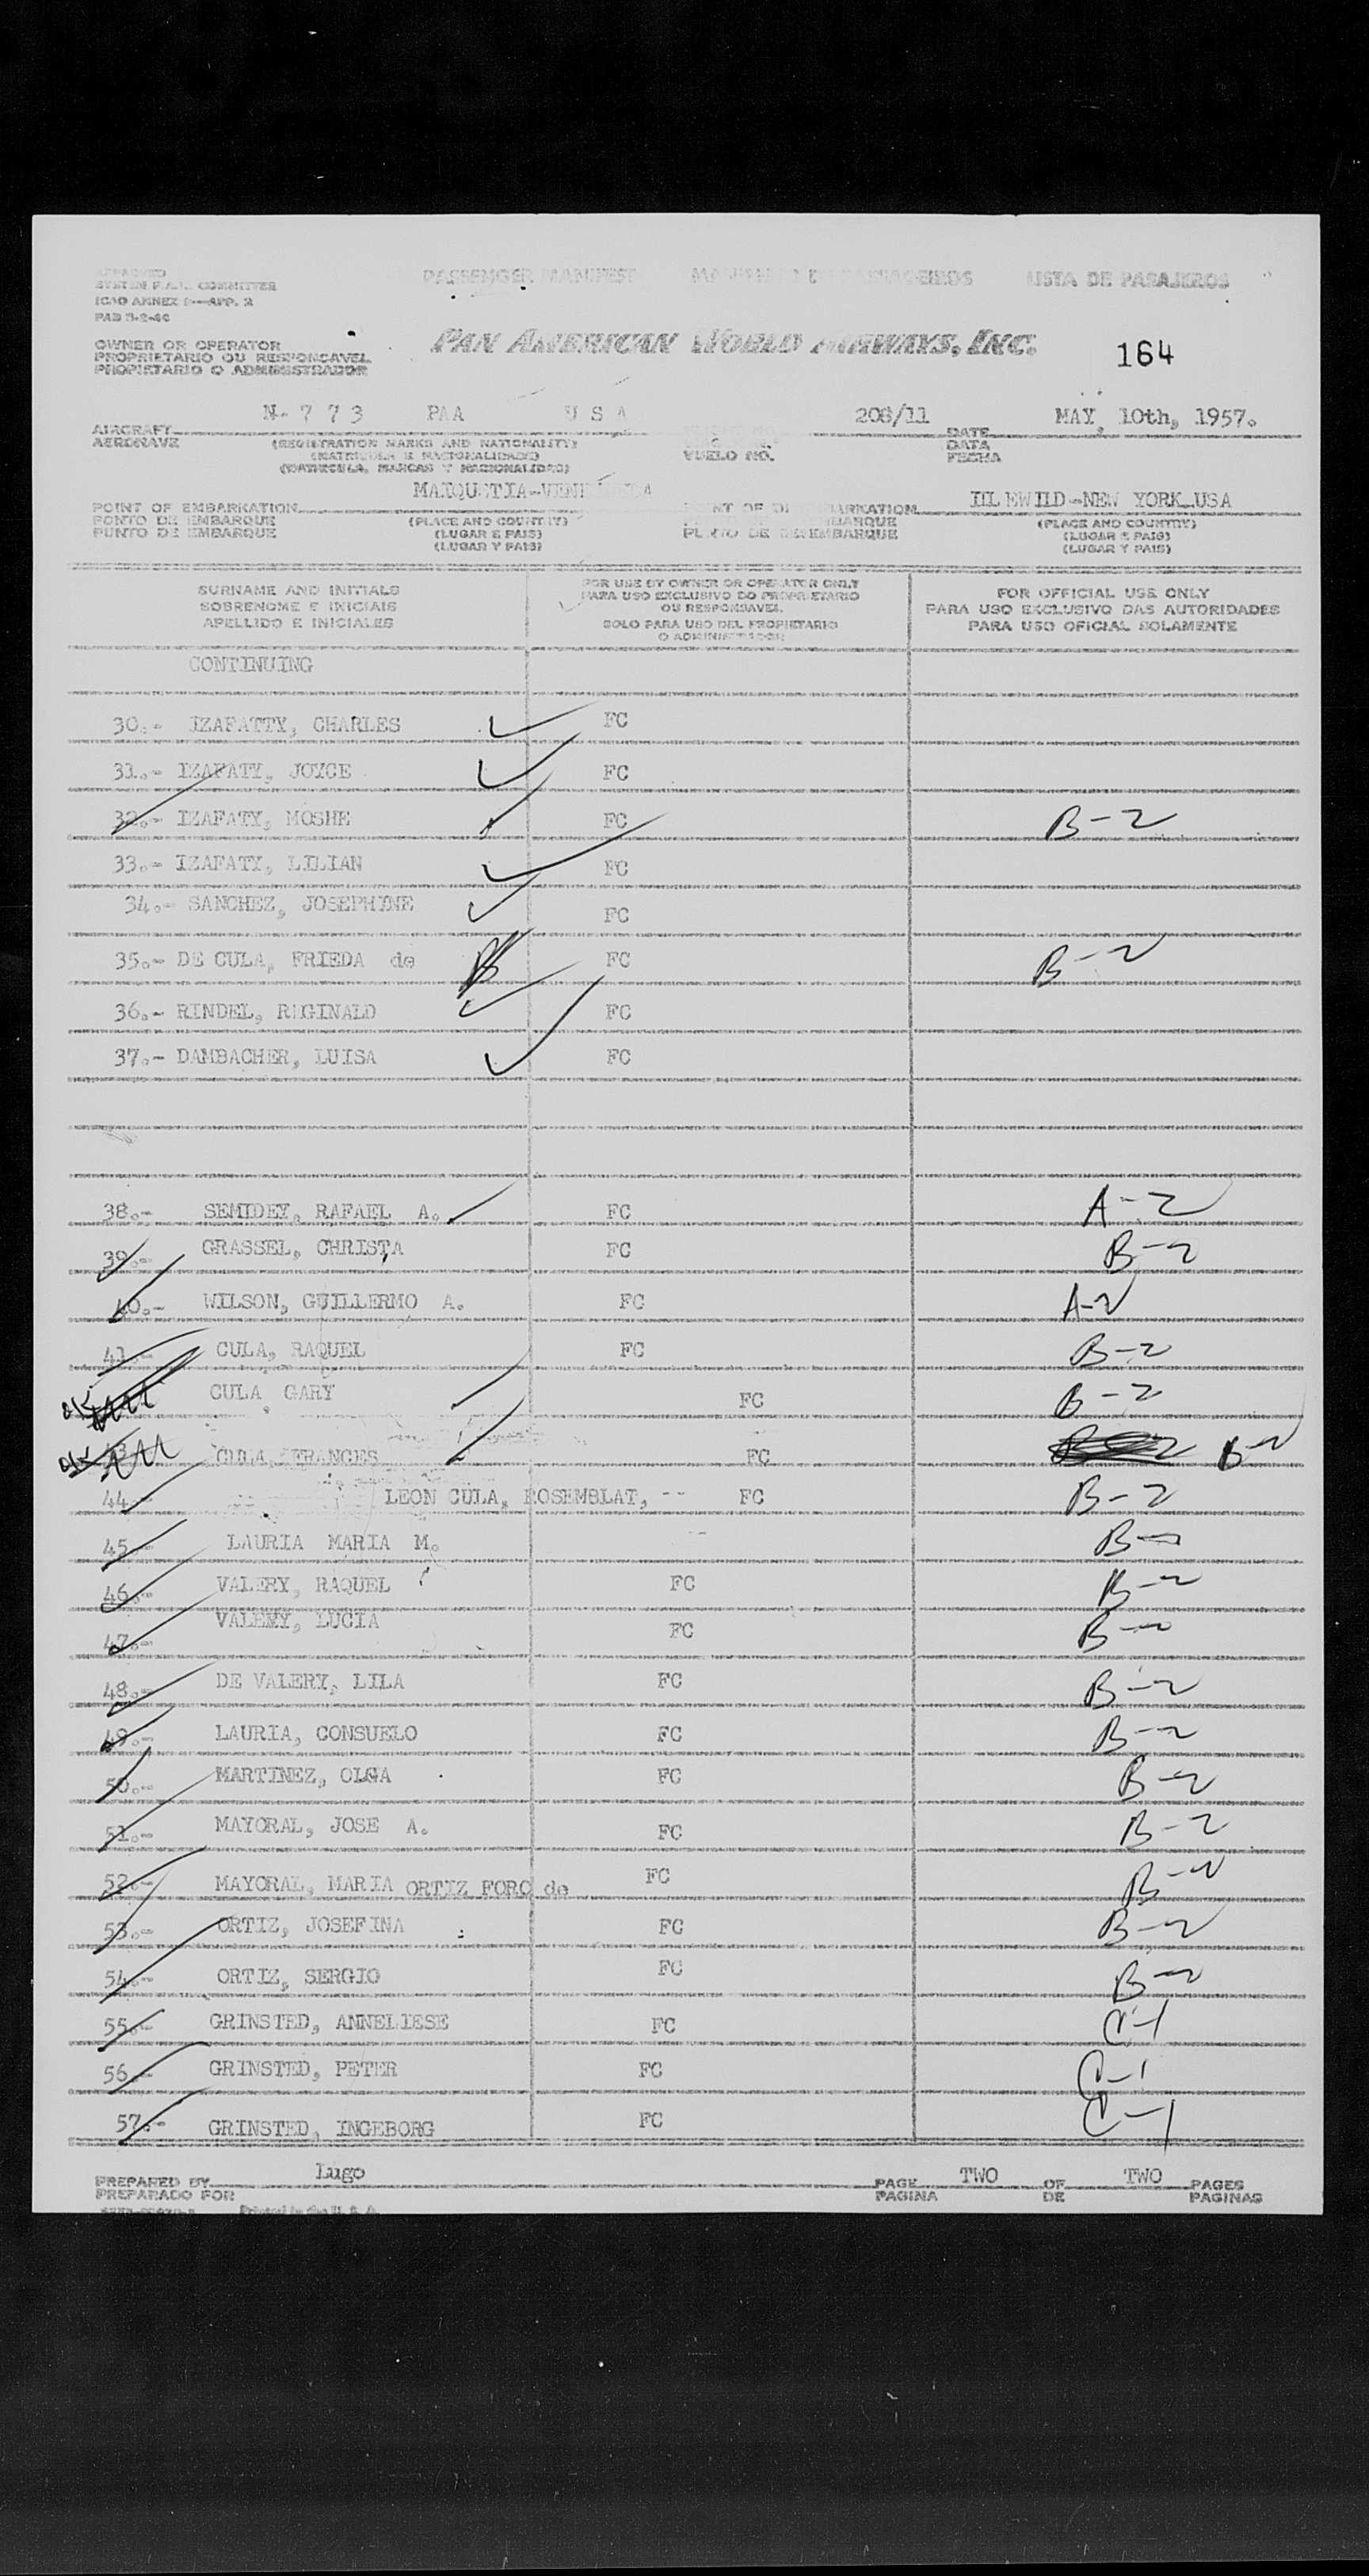 APPROVED
SYSTEM F.A.L. COMMITTEE
ICAO ANNEX 9—APP. 2
PASSENGER MANIFEST LISTA DE PASAJEROS
OWNER OR OPERATOR
PROPRIETARIO OU RESPONSAVEL
PROPIETARIO O ADMINISTRADOR
PAN AMERICAN WORLD AIRWAYS, INC.
164
N-773 PAA USA 208/11 MAY, 10th, 1957.
AIRCRAFT DATE
AERONAVE DATA
(REGISTRATION MARKS AND NATIONALITY)
(MATRICULA E NACIONALIDADE)
(MATRICULA, MARCAS Y NACIONALIDAD)
VUELO NO. FECHA
MAIQUETIA-VENEZUELA IDLEWILD-NEW YORK-USA
POINT OF EMBARKATION POINT OF DISEMBARKATION
PONTO DE EMBARQUE
PUNTO DE EMBARQUE PUNTO DE DESEMBARQUE
(PLACE AND COUNTRY) (PLACE AND COUNTRY)
(LUGAR E PAIS) (LUGAR E PAIS)
(LUGAR Y PAIS) (LUGAR Y PAIS)
SURNAME AND INITIALS
SOBRENOME E INICIAIS
APELLIDO E INICIALES
FOR USE BY OWNER OR OPERATOR ONLY
PARA USO EXCLUSIVO DO PROPRIETARIO
OU RESPONSAVEL
SOLO PARA USO DEL PROPIETARIO
O ADMINISTRADOR
FOR OFFICIAL USE ONLY
PARA USO EXCLUSIVO DAS AUTORIDADES
PARA USO OFICIAL SOLAMENTE
CONTINUING
30.- IZAFATTY, CHARLES FC
31.- IZAFATY, JOYCE FC
32.- IZAFATY, MOSHE FC B-2
33.- IZAFATY, LILIAN FC
34.- SANCHEZ, JOSEPHINE FC
35.- DE CULA, FRIEDA de FC B-2
36.- RINDEL, REGINALD FC
37.- DAMBACHER, LUISA FC
38.- SEMIDEY, RAFAEL A. FC A-2
39.- GRASSEL, CHRISTA FC B-2
40.- WILSON, GUILLERMO A. FC A-2
41.- CULA, RAQUEL FC B-2
CULA GARY FC B-2
43 CULA, FRANCES FC B-2
44.- LEON CULA, ROSEMBLAT, -- FC B-2
45.- LAURIA MARIA M. B-2
46.- VALERY, RAQUEL FC B-2
47.- VALEMY, LUCIA FC B-2
48.- DE VALERY, LILA FC B-2
49.- LAURIA, CONSUELO FC B-2
50.- MARTINEZ, OLGA FC B-2
51.- MAYORAL, JOSE A. FC B-2
52.- MAYORAL, MARIA ORTIZ FORO de FC B-2
53.- ORTIZ, JOSEFINA FC B-2
54.- ORTIZ, SERGIO FC B-2
55.- GRINSTED, ANNELIESE FC C-1
56.- GRINSTED, PETER FC C-1
57.- GRINSTED, INGEBORG FC C-1
PREPARED BY Lugo PAGE TWO OF TWO PAGES
PREPARADO POR PAGINA DE PAGINAS
Printed in the U. S. A.